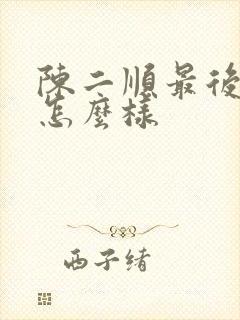 陳二順最後
怎麼樣
西子緒